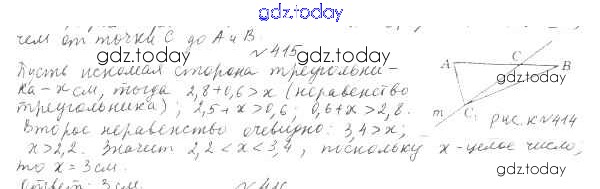 gdz.today
чем от точки C до A и B.
N 415
gdz.today
Пусть искомая сторона треугольни-
ка - x см, тогда 2,8+0,6>x (неравенство
треугольника); 2,5+x>0,6; 0,6+x>2,8.
Второе неравенство очевидно: 3,4>x;
x>2,2. Значит 2,2<x<3,4, поскольку x-целое число,
то x = 3 см.
Ответ: 3 см.
A C B
gdz.today
m C₁ рис. к N 414
gdz.today
gdz.today
N 416